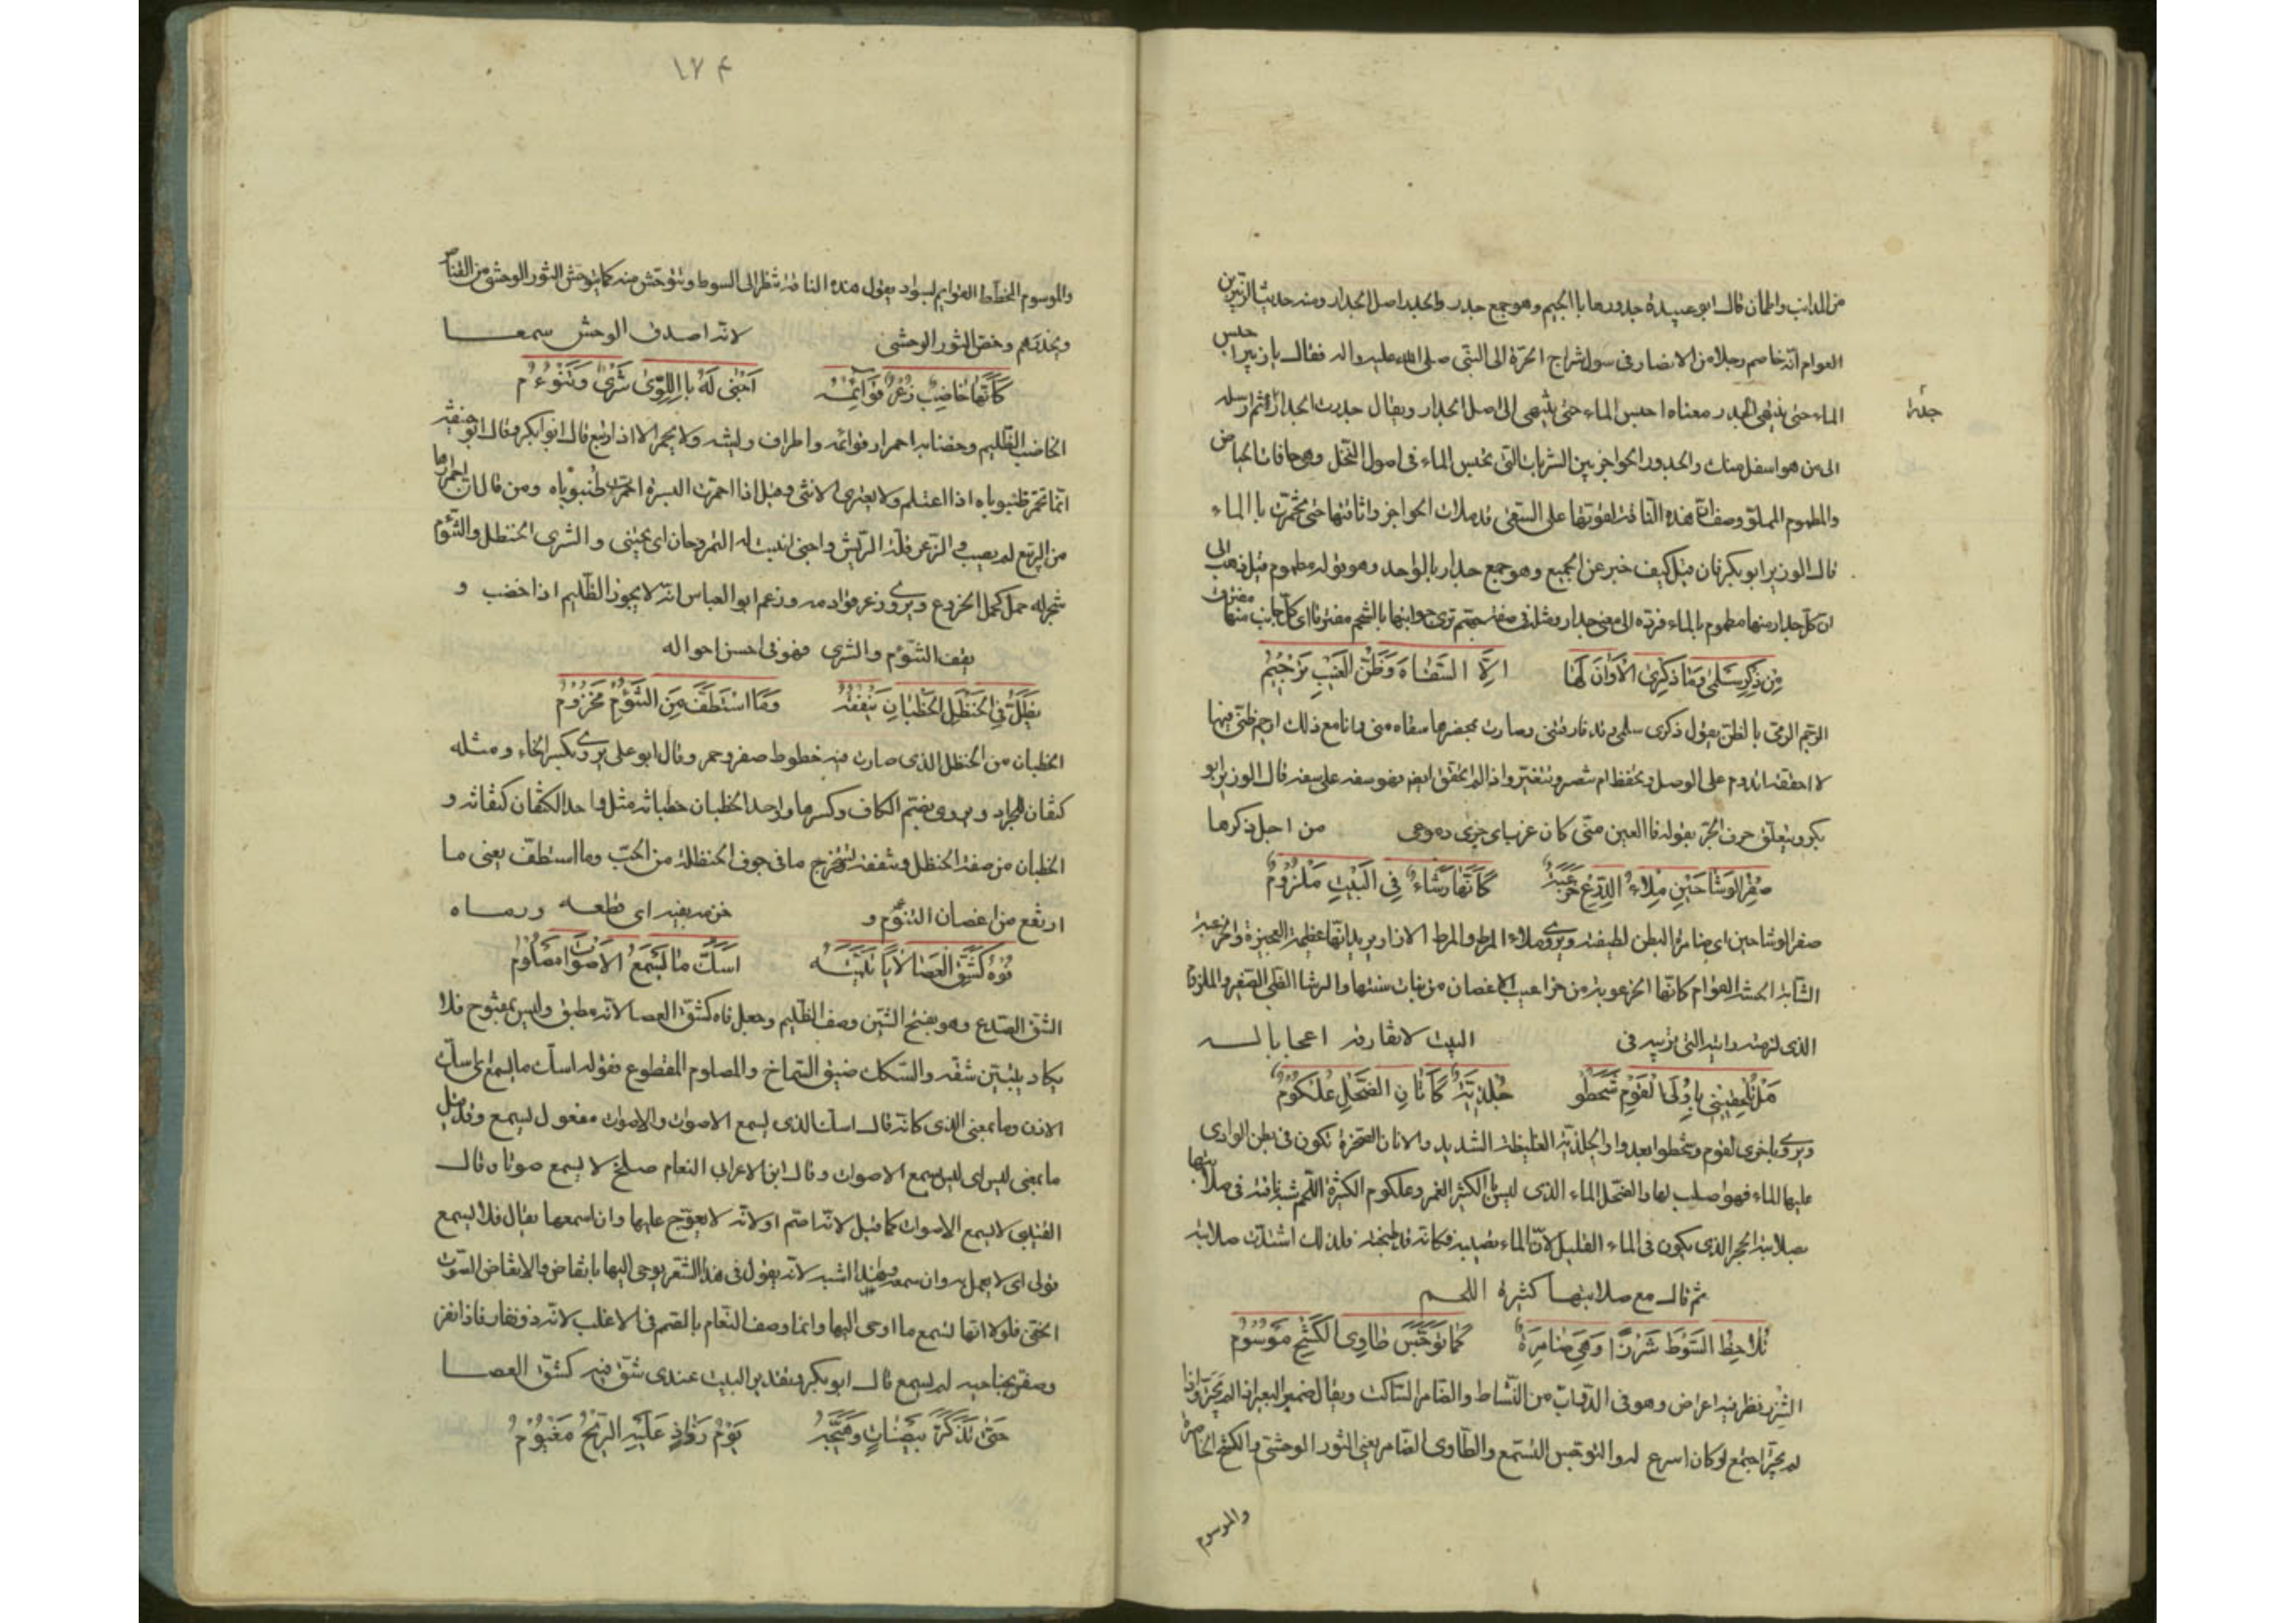 من المذانب والمان قال ابو عبيدة جدورها با الجيم وهو جمع جدر والجدر اصل الجدار ومنه حديث الزبير بن
العوام انه خاصم رجلا من الانصار فى سول شراج الحرّة الى النبى صلى الله عليه واله فقال يا زبير احبس
الماء حتى ينتهى الجدر معناه احبس الماء حتى ينتهى الى اصل الجدار ويقال جدرت الجدار ثم ارسله
جدرا
الى من هو اسفل منك والجدور الحواجز بين الشربات التى تحبس الماء فى اصول النخل وهى حافات الحياض
والمطموم المملوّ وصف ان هذه الناقة لقوتها على السقى قد ملات الحواجز واثافتها حتى تجمّرت با الماء
قال الوزير ابو بكر فان قيل كيف خبر عن الجميع وهو جمع جدار بالواحد وهو قوله مطموم قيل ذهب الى
ان كل جدار منها مطموم بالماء فرده الى معنى جدار ومثله فى صفة ترى جوانبها بالشحم مفتوقا اى كل جانب منها مفتوق
مِن ذِكرِ سَلمى وَمَا ذِكرِى الأَوَانَ لَهَا اِلّا السَّفَاهَ وَظَنّ الغَيبِ تَرجِيمُ
الرّجم الرمى با لظن يقول ذكرى سلمى وقد فارقتنى وصارت بحضرها سفاه منى وانا مع ذلك ارجم ظنى فيها
لا احققه اتدوم على الوصل وتحفظ ام تصر وتتغير واذا لم اتحقق ايضا فهو سفه على سفه قال الوزير ابو
بكر ويتعلّق حرف الجر بقوله فا العين منّى كان غربا اى جرى دموعى من اجل ذكرها
صِفرُ الوِشَاحَينِ مِلاءُ الدِّرعِ خَرعَبَةٌ كَأَنَّهَا رَشَاءٌ فِى البَيتِ مَلزُومٌ
صفر الوشاحين اى ضامرة البطن لطيفته ويروى ملاء المرط والمرط الازار يريد انها عظيمة العجيزة والخرعبة
الشابة الحسنة القوام كانها الخرعوبة من خراعيب الاغصان من نبات سنتها والرشا الظبى الصغير والملزوم
الذى لزمته رابته التى تربيه فى البيت لا تفارقه اعجابا له
هَل تُلحِقَنِّى بِاُولَى القَومِ شَحَطُوا جُلذِيَّةٌ كَأَتَانِ الضَّحلِ عُلكُومٌ
ويروى باخرى القوم وشحطوا بعدوا والجلذيّة الغليظة الشديدة والاتان الصخرة تكون فى بطن الوادى
عليها الماء فهو اصلب لها والضحل الماء الذى ليس با الكثير الغمر وعلكوم الكثيرة اللحم شبه ناقته فى صلابتها
بصلابة الحجر الذى يكون فى الماء القليل لانّ الماء يصليه فكانه قد طبخه فلذلك اشتدّت صلابته
ثم قال مع صلابتها كثيرة اللحم
تُلَاحِظُ السَّوطَ شَزرًا وَهىَ ضَامِرَةٌ كَمَا تَوَجَّسَ طَاوِى الكَشحِ مَوشُومُ
الشزر نظر فيه اعراض وهو فى الدواب من النّشاط والضامر الساكت ويقال ضمز البعير اذا لم يجترّ واذا
لم يجترّ اجتمع لوكان اسرع له والتوجس التسمع والطّاوى الضامر يعنى الثور الوحشىّ والكشح الخاصرة
والموسوم
١٧٤
والموسوم المخطط القوايم بسواد يقول هذه الناقة تنظر الى السوط وتتوحّش منه كما يتوحّش الثور الوحشى من القناص
ويحذرهم وخصّ الثور الوحشى لانه اصدق الوحش سمعا
كَأَنَّهَا خَاضِبٌ زُعرٌ قَوَائِمُهُ اَجنَى لَهُ بااللِّوَى شَرىٌ وَتَنُّومُ
الخاضب الظليم وخضابه احمرار قوائمه واطراف ريشه ولا يحمر الا اذا ربع قال ابوا بكر وقال ابو حنيفة
انما تحمر ظنبوباه اذا اغتلم ولا يعترى الانثى وقيل اذا احمرّت البسرة احمرّت ظنبوباه ومن قال ان احمرارها
من الربيع لم يصب والزعر قلّة الريش واجنى انبت له الثمر وحان اى يجتنى والشرى الحنظل والتنّوم
شجر له حمل كحمل الخروع ويروى زعر قوادمه وزعم ابو العباس انّه لا يجوز الظّليم اذا خضب و
نقف التنّوم والشرى فهو فى احسن احواله
يَظَلُّ فِى الحَنظَلِ الخُطبَانِ يَنقُفُهُ وَمَا استَطَفَّ مِنَ التَّنُّومِ مَخذُومُ
الخطبان من الحنظل الذى صارت فيه خطوط صفر وحمر وقال ابو على يروى بكسر الخاء ومثله
كتفان الجراد ويروى بضم الكاف وكسرها وواحد الخطبان خطبانه مثل واحد الكتفان كتفانه و
الخطبان من صفة الحنظل وينقفه يستخرج ما فى جوف الحنظلة من الحبّ وما استطفّ يعنى ما
ارتفع من اغصان التنوّم و خزمه بفيه اى قطعه ورماه
فُوهٌ كَشَقِّ العَصَا لأيًا تَبَيَّنُهُ اَسَكُّ مَا يَسمَعُ الأَصوَاتَ مَصلُومُ
الشق الصدع وهو بفتح الشين وصف الظّليم وجعل فاه كشق العصا لانه مطبق وليس بمفتوح فلا
يكاد يتبيّن شقّه والسكك ضيق السماخ والمصلوم المقطوع فقوله اسك ما يسمع اى اسك
الاذن وما بمعنى الذى كانه قال اسك الذى يسمع الاصوات والاصوات مفعول ليسمع وقد قيل
ما بمعنى ليس اى ليس يسمع الاصوات وقال ابن الاعرابى النعام صلخ لا يسمع صوتا وقال
القتيبى لا يسمع الاصوات كما قيل لانه اصم او لانه لا يعوّج عليها وان اسمعها يقال فلا يسمع
قولى اى لا يعمل به وان سمعه وهذا اشبه لانه يقول فى هذا الشّعر يوحى اليها بانقاض والانقاض الصوت
الخفىّ فلولا انها تسمع ما اوحى اليها وانما وصف النّعام بالصّم فى الاغلب لانّه ذو نفار فاذا نفر
وصفق بجناحيه لم يسمع قال ابو بكر وتقدير البيت عندى شق فيه كشق العصا
حَتّى تَذَكَّرَ بَيضَاتٍ وَهَيَّجَهُ يَومُ رَذَاذٍ عَلَيهِ الرّيحُ مَغيُومُ